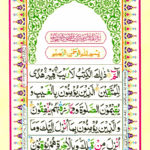 بِسْمِ اللهِ الرَّحْمٰنِ الرَّحِيْمِ
الٓمّٓ ذٰلِكَ الْكِتٰبُ لَا رَيْبَ فِيْهِ هُدًى
لِّلْمُتَّقِيْنَ الَّذِيْنَ يُؤْمِنُوْنَ بِالْغَيْبِ وَ
يُقِيْمُوْنَ الصَّلٰوةَ وَمِمَّا رَزَقْنٰهُمْ يُنْفِقُوْنَ
وَالَّذِيْنَ يُؤْمِنُوْنَ بِمَآ اُنْزِلَ اِلَيْكَ وَمَآ